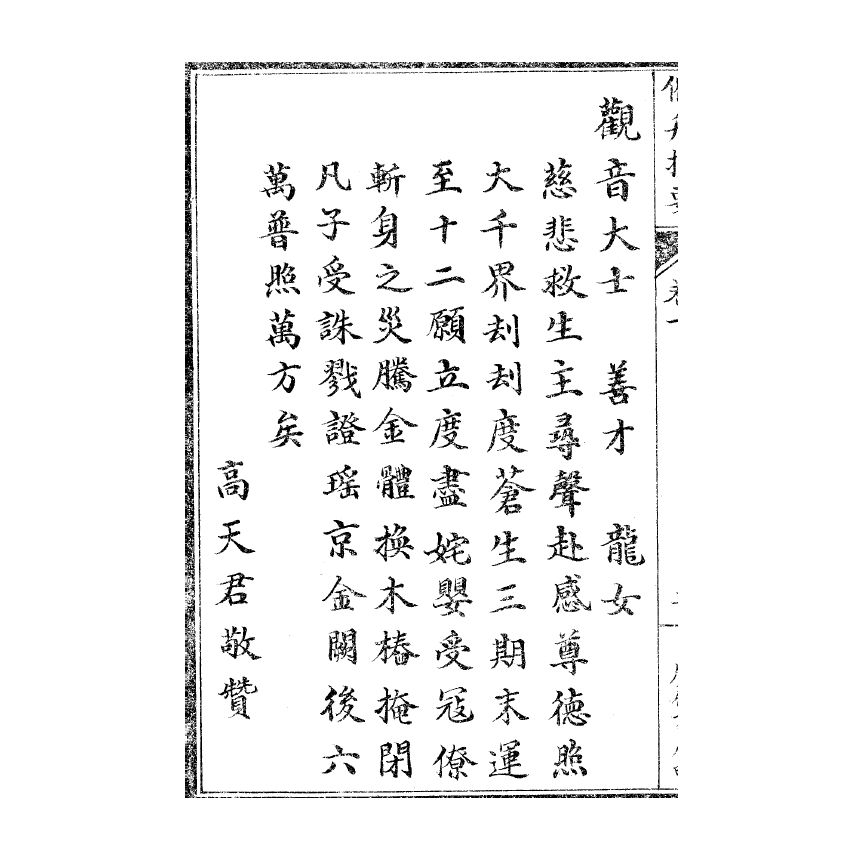 卷一
觀音大士　善才　龍女
慈悲救生主尋聲赴感尊德照
大千界刦刦度蒼生三期末運
至十二願立度盡姹嬰受冦僚
斬身之災騰金體換木樁掩閉
凡子受誅戮證瑶京金闕後六
萬普照萬方矣
高天君敬贊